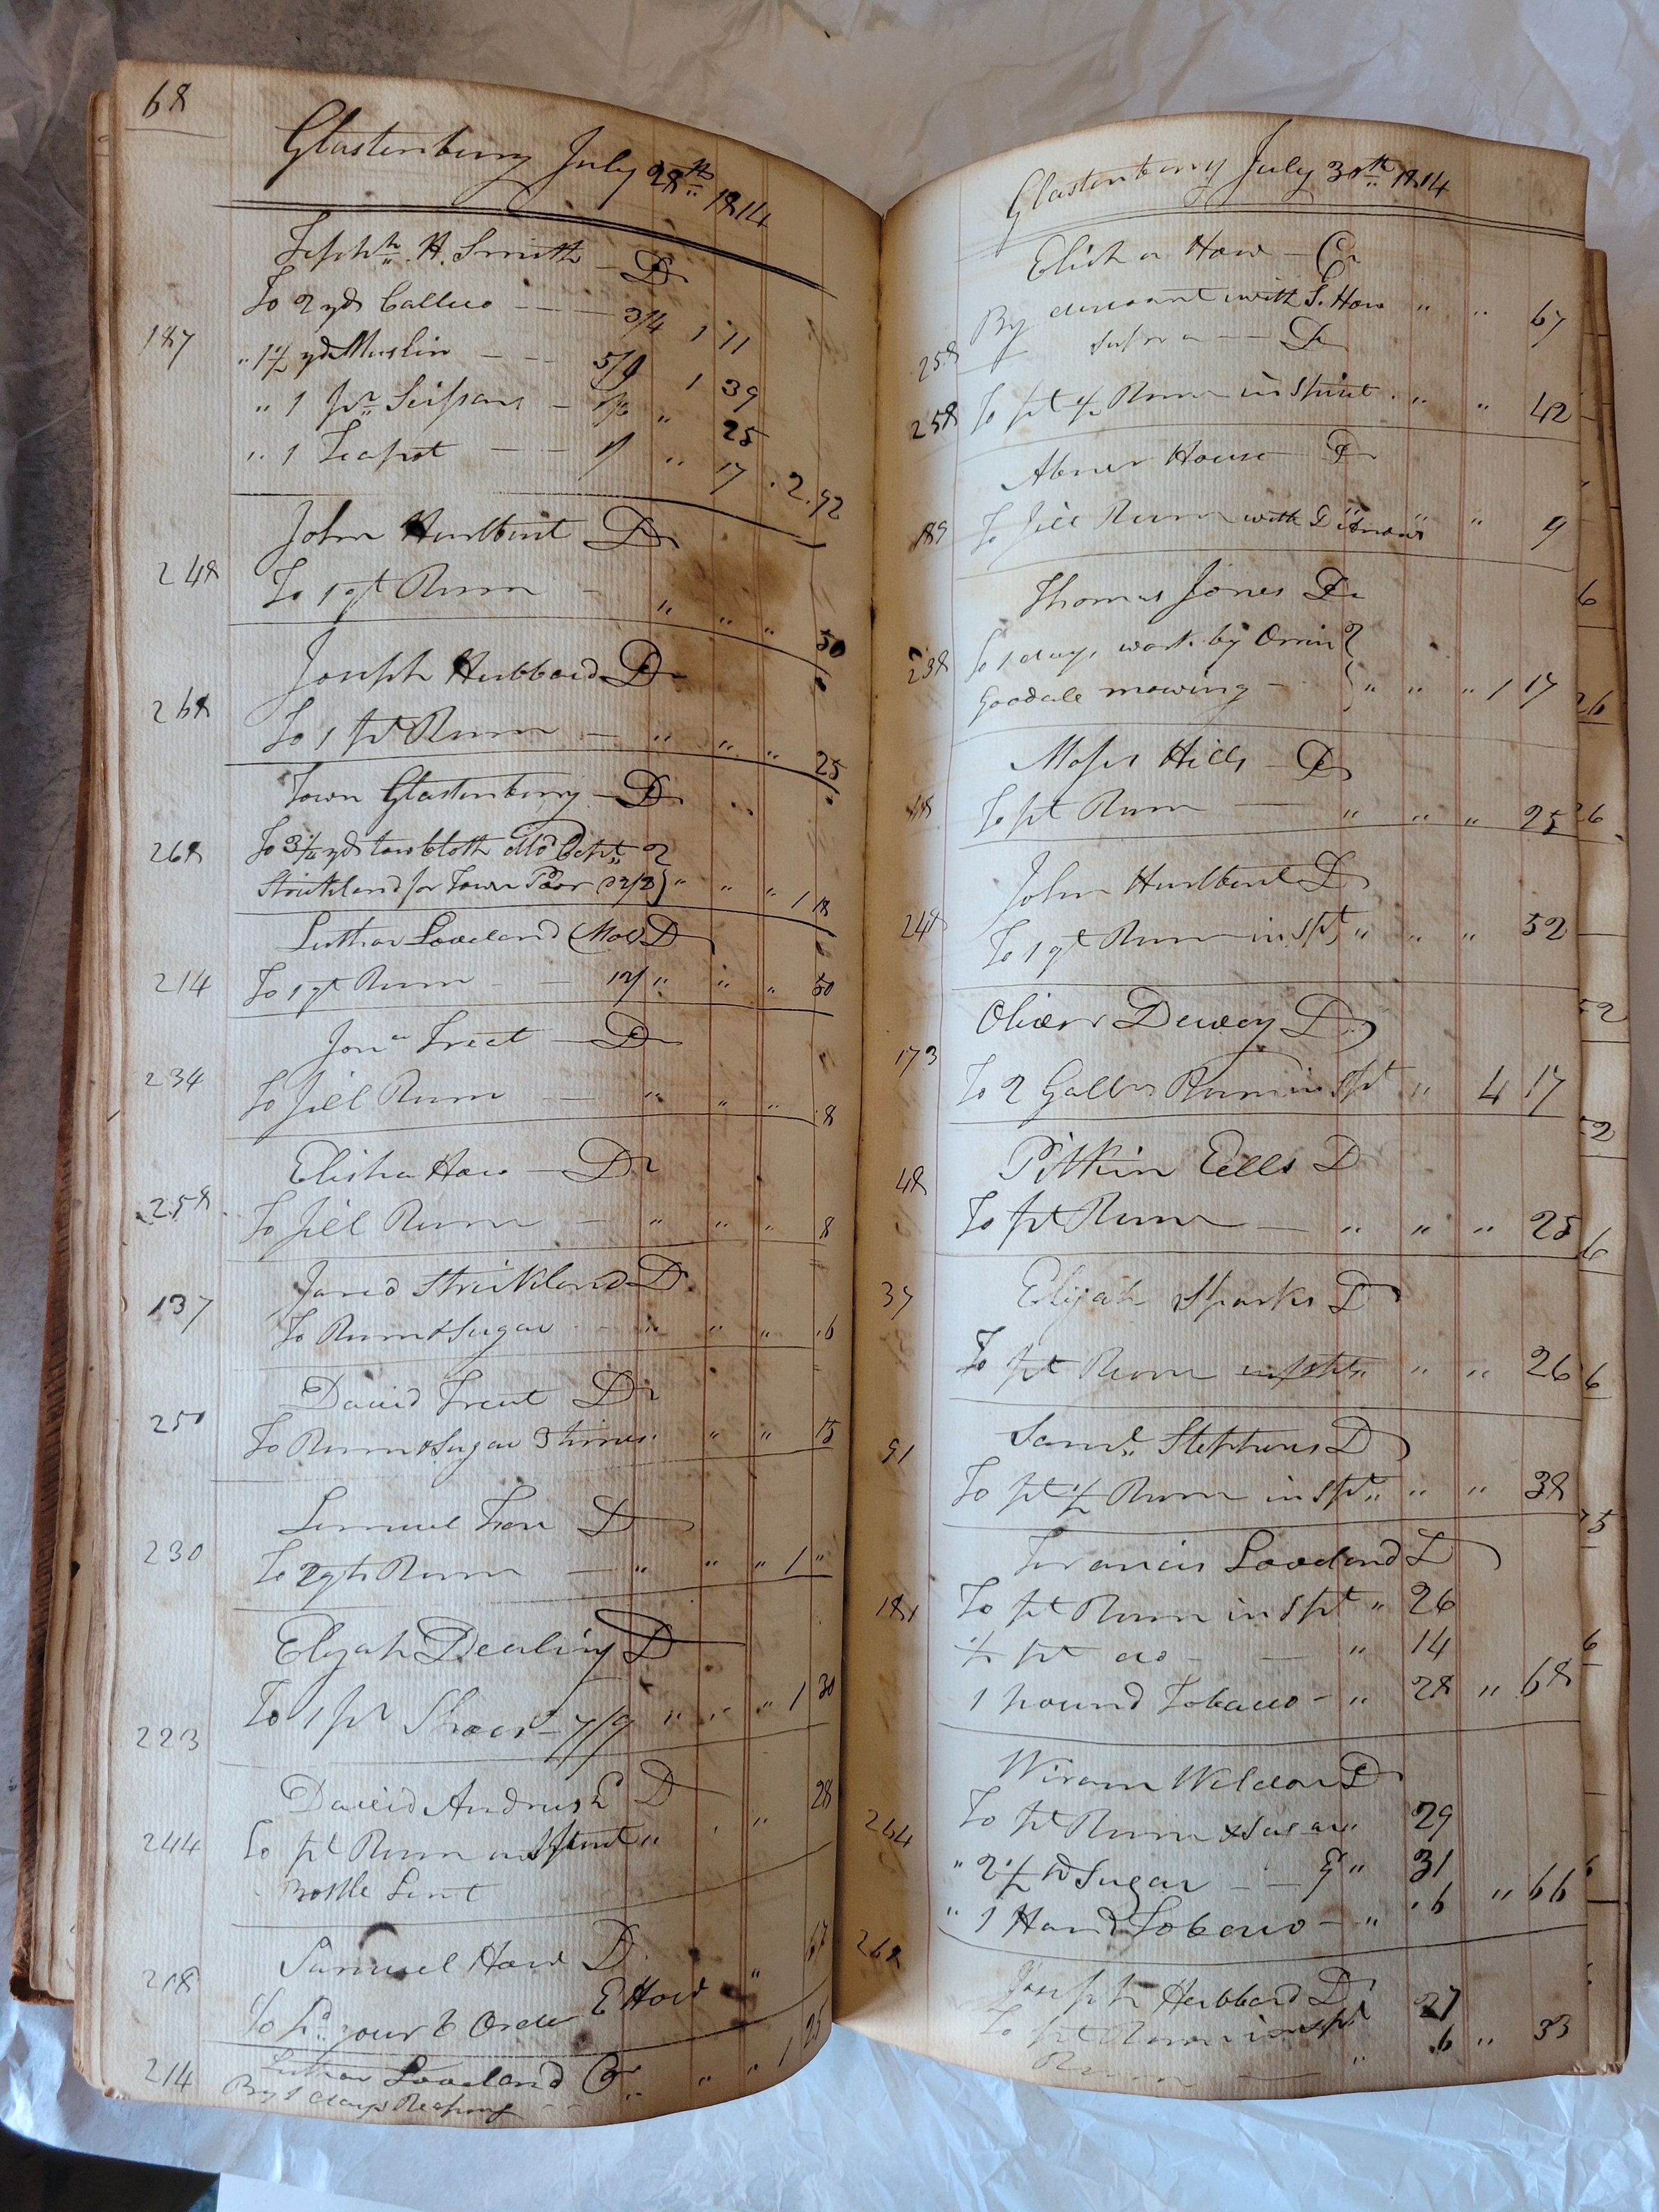 68
Glastenbury July 28th 1814
Jseph H. Smith Dr
To 2 yds Callico 3/4 1 11
187
" 1 1/2 yd Muslin 5/9 1 39
" 1 pr Scissars 1/6 " 25
" 1 Teapot 1/ " 17 2.92
John Hurlbut Dr
248
To 1 qt Rum " " " 50
Joseph Hubbard Dr
268
To 1 pt Rum " " " 25
Town Glastenbury Dr
268 To 3 1/4 yds tow Cloth Capt
Strickland for Town Poor " " " 1 18
Luther Loveland Dr
214 To 1 qt Rum " " " 50
Jona Treat Dr
234 To Jill Rum " " " 8
Elisha How Dr
258 To Jill Rum " " " 8
Jared Strickland Dr
137 To Rum & Sugar " " " 6
David Treat Dr
250 To Rum & Sugar 3 times " " 15
Lemuel Dr
230 To 2 qts Rum " " " 1 "
Elijah Dealing Dr
To 1 pr Shoes 7/9 " " " 1 30
223
David Andrus Dr 28
244 To pt Rum in Spirit " " "
Bottle Lent
Samuel How Dr 67
218 To pd your Order E How "
Luther Loveland Cr " " " 1 25
214 By 1 days Reaping
Glastenbury July 30th 1814
Elisha How Cr
By discount with S. How " " 67
258 supra Dr
258 To pt 1/2 Rum in Spirit " " 42
Abner House Dr
189 To Jill Rum with D Andrus " 9
Thomas Jones Dr
238 To 1 days work by Orrin
Goodale mowing " " " 1 17
Moses Hills Dr
To pt Rum " " " 25
John Hurlbut Dr
248 To 1 qt Rum in Spt " " " 52
Oliver Dewey Dr
173
To 2 Galls Rum in Spt " 4 17
Pitkin Eells Dr
48
To pt Rum " " " 25
37 Elijah Sparks Dr
To pt Rum in spts " " 26
Saml Stephens Dr
91
To pt 1/2 Rum in Spt " " " 38
Francis Loveland Dr
181 To pt Rum in Spt " 26
1/2 pt do " 14
1 pound Tobacco " 28 " 68
Hiram Weldon Dr
264 To pt Rum & Sugar " 29
" 2 1/2 lb Sugar " 31
" 1 Hand Tobacco " 6 " 66
268
Joseph Hubbard Dr
To pt Rum in spt 27
Rum " 6 " 33